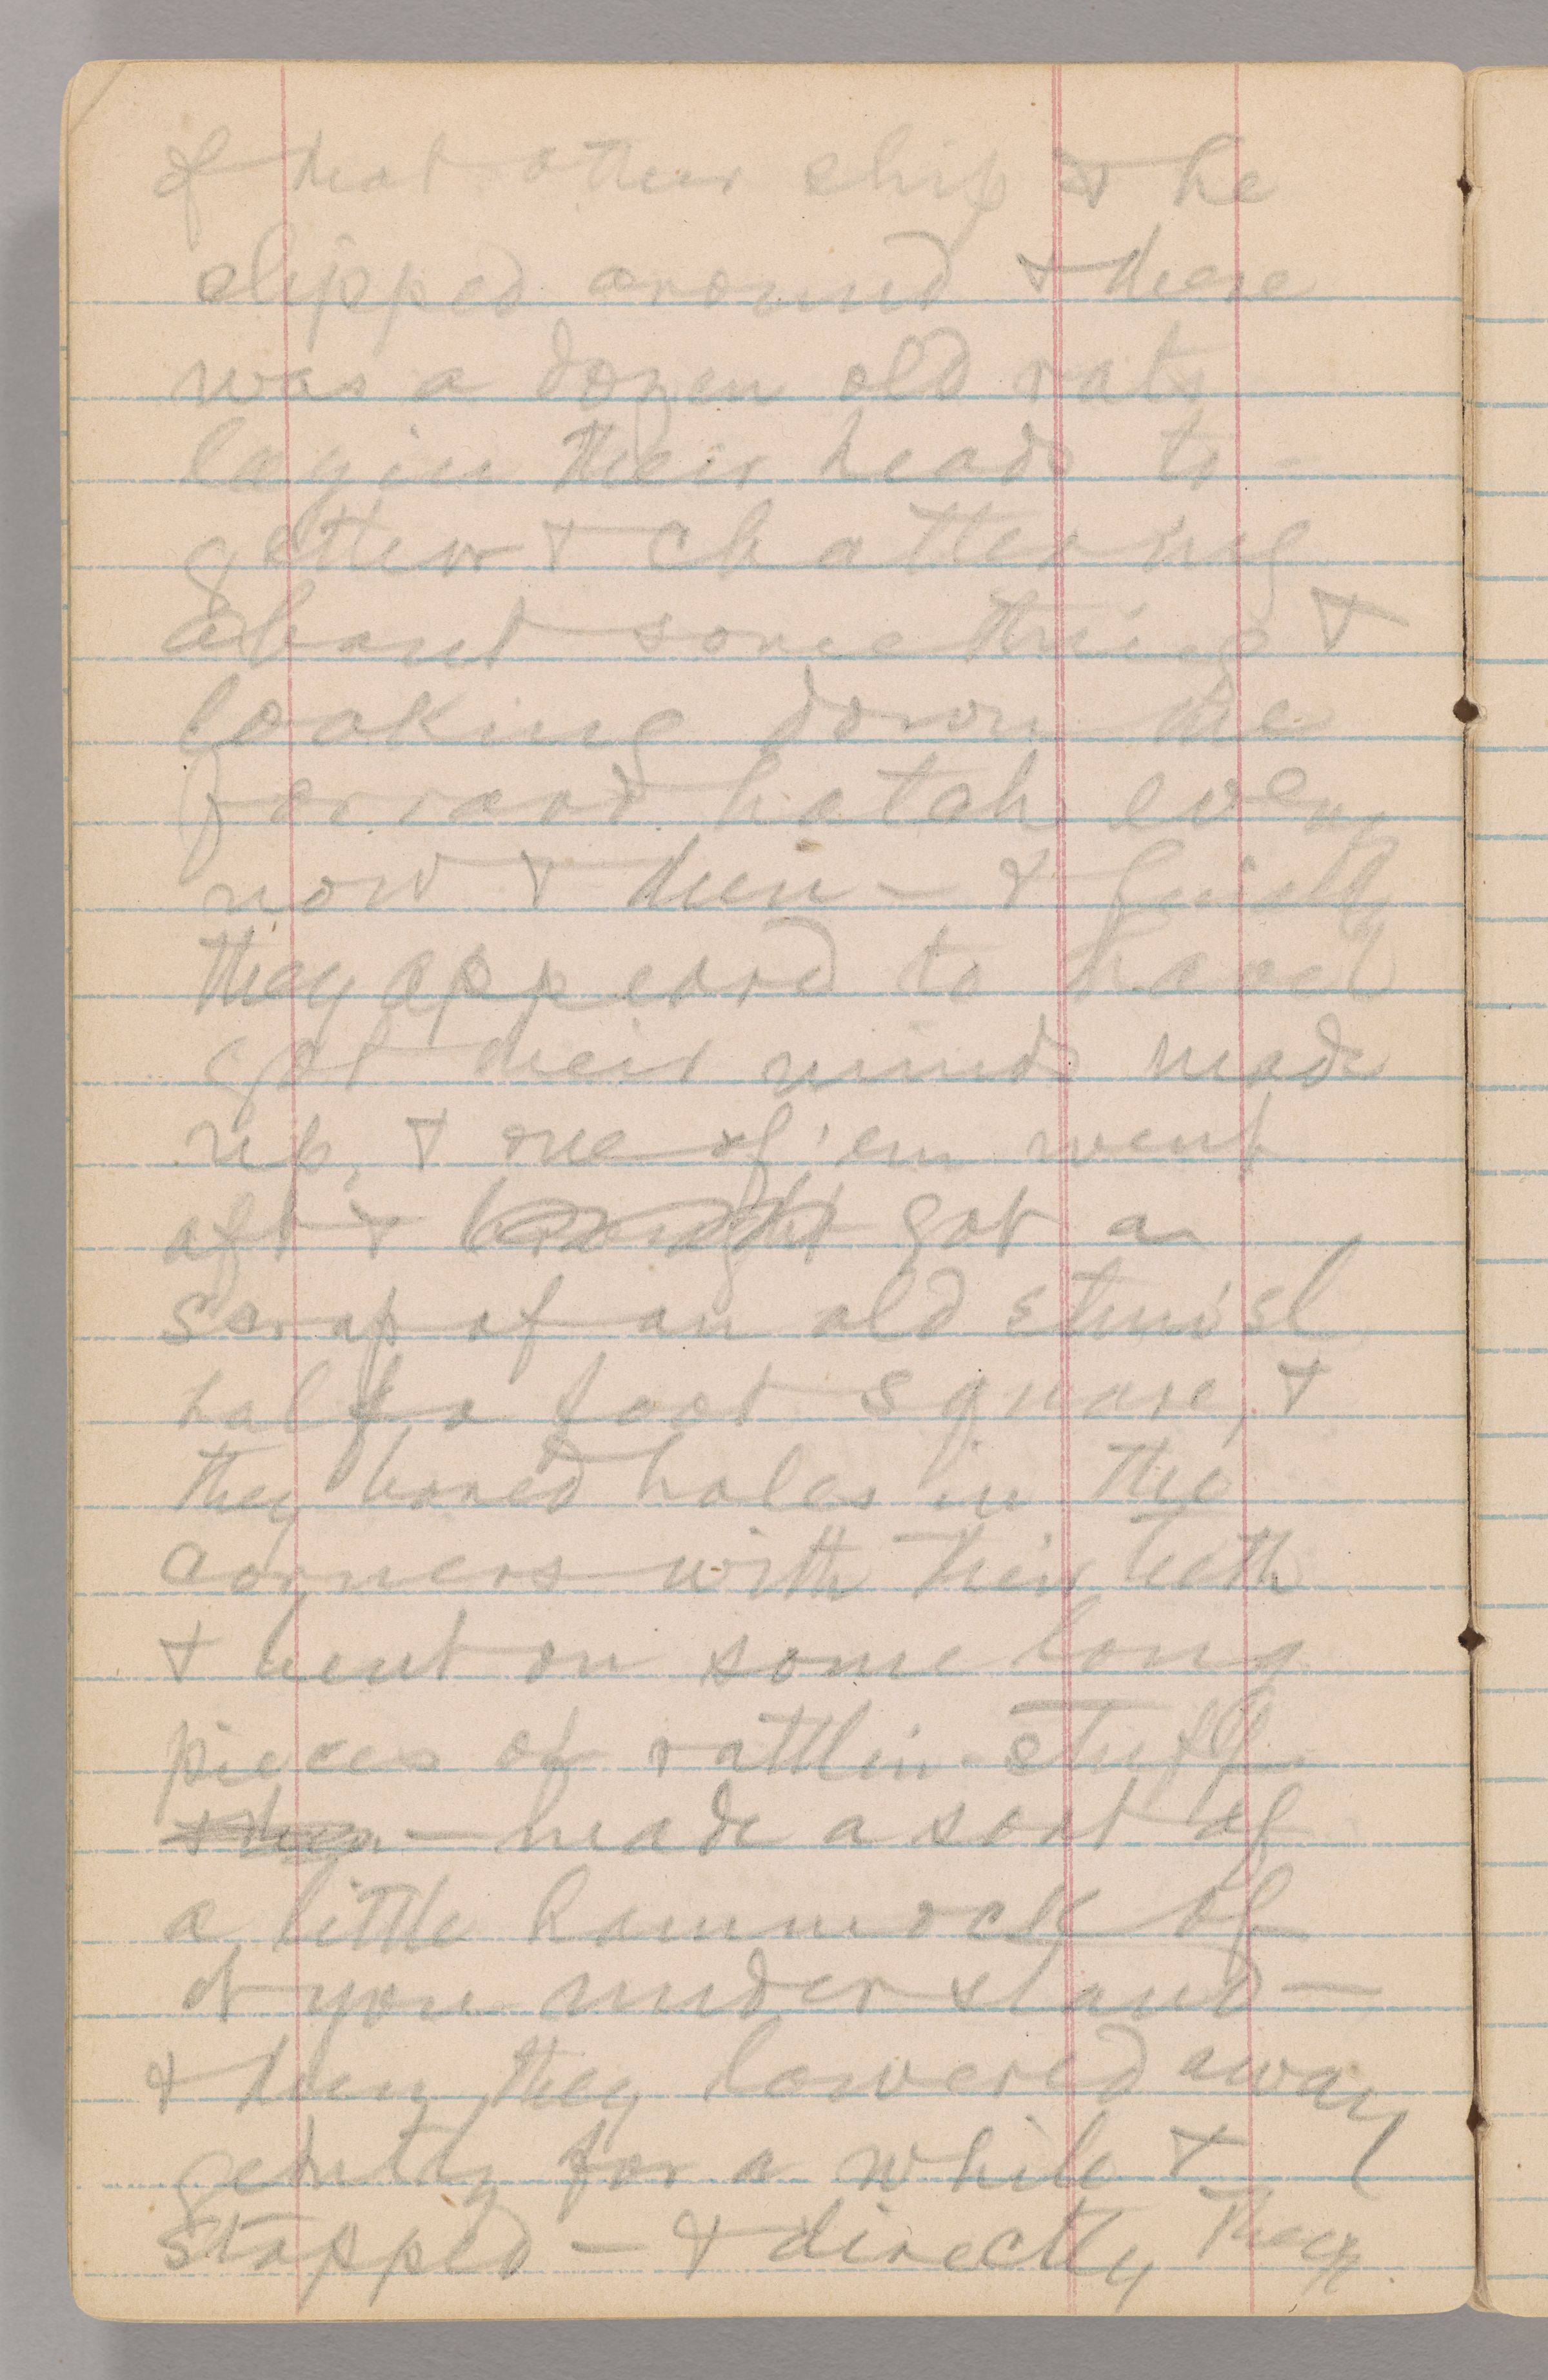 of that other ship & he
slipped around & there
was a dozen old rats
layin their heads to-
gether & chattering
about something &
looking down the
forrard hatch every
now & then — & finally
they appeared to have
got their minds made
up, & one of 'em went
aft & brought got a
scrap of an old stunsl
half a foot square, &
they bored holes in the
corners with their teeth
& bent on some long
pieces of rattlin-stuff
& then — made a sort of
a little hammock of
it you understand —
& then they lowered away
gently for a while &
stopped — & directly they